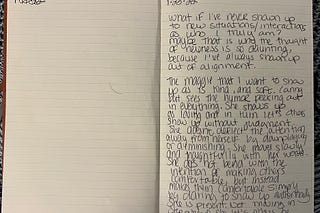 What if I've never shown up
to new situations/interactions
as who I truly am?
Maybe that is why the thought
of newness is so daunting,
because I've always shown up
out of alignment.
The Maggie that I want to show
up as is kind, and soft,
but sees the humor peeking out
in everything. She shows up
as loving and in turn lets others
show up without judgement.
She doesn't deflect the attention
away from herself by
or diminishing. She moves slowly
and thoughtfully with her words.
She does not bend with the
intention of making others
comfortable, but instead
makes them comfortable simply
by daring to show up authentically
She is present. Not